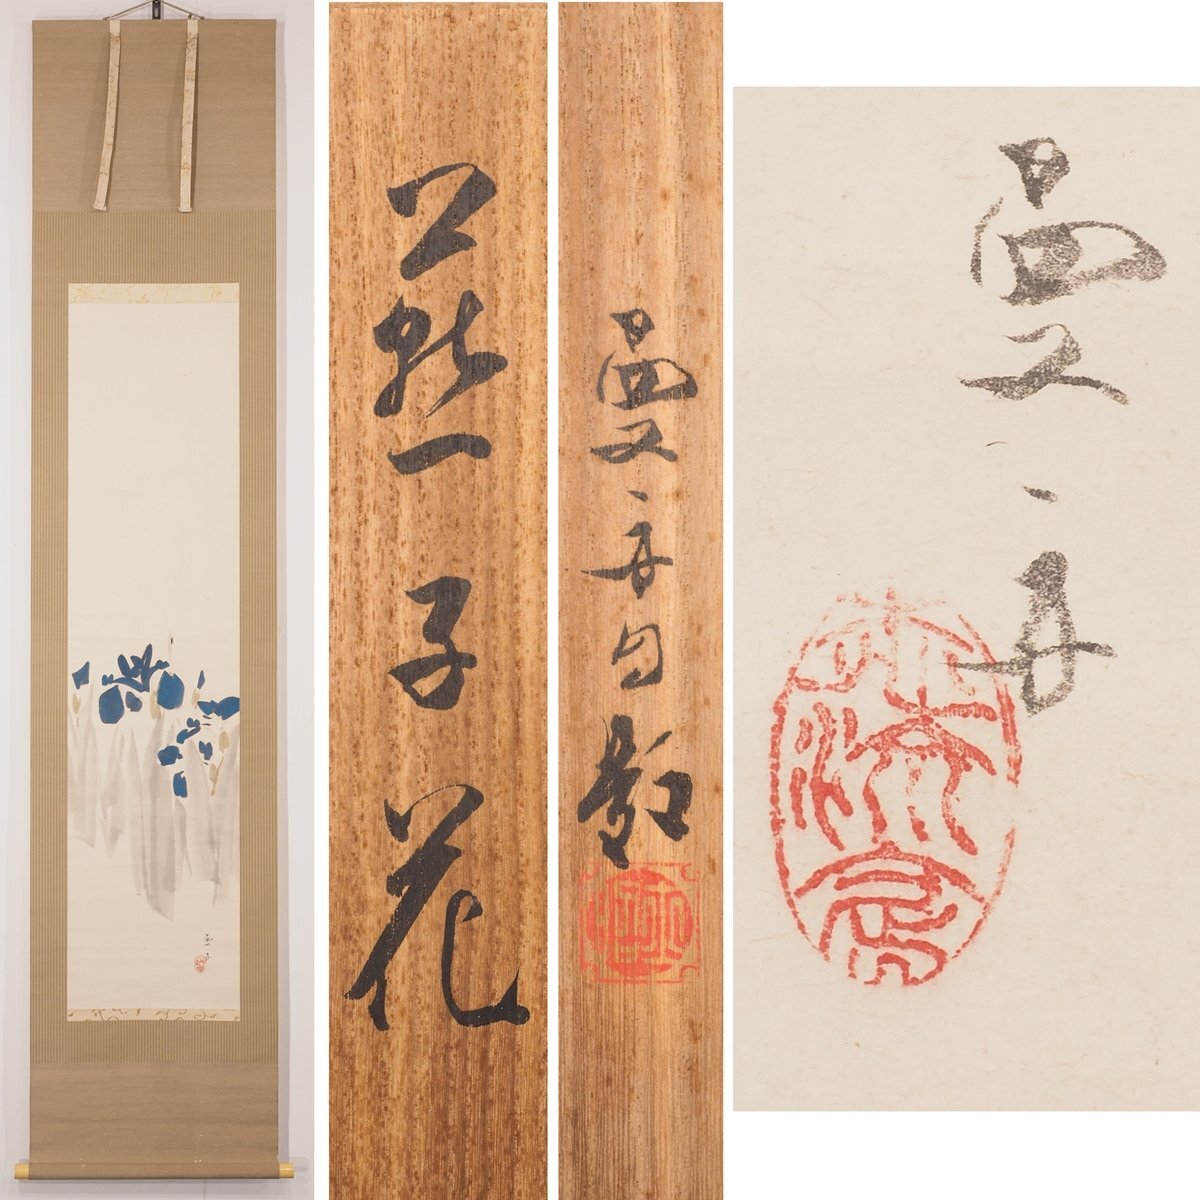 燕子花
曼舟自題
曼舟